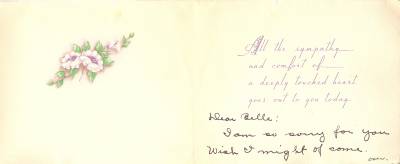 All the sympathy
and comfort of
a deeply touched heart
goes out to you today
Dear Belle:
I am so sorry for you
Wish I might of come.
over.